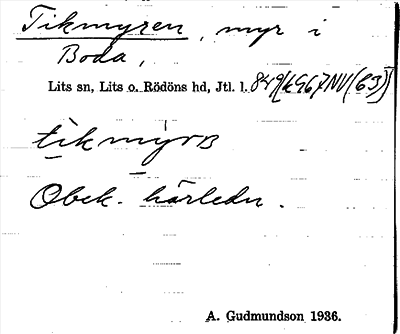 Tikmyren, myr i
Boda,
Lits sn, Lits o. Rödöns hd, Jtl. l.
tikmyrɞ
Obek. härledn.
A. Gudmundson 1936.